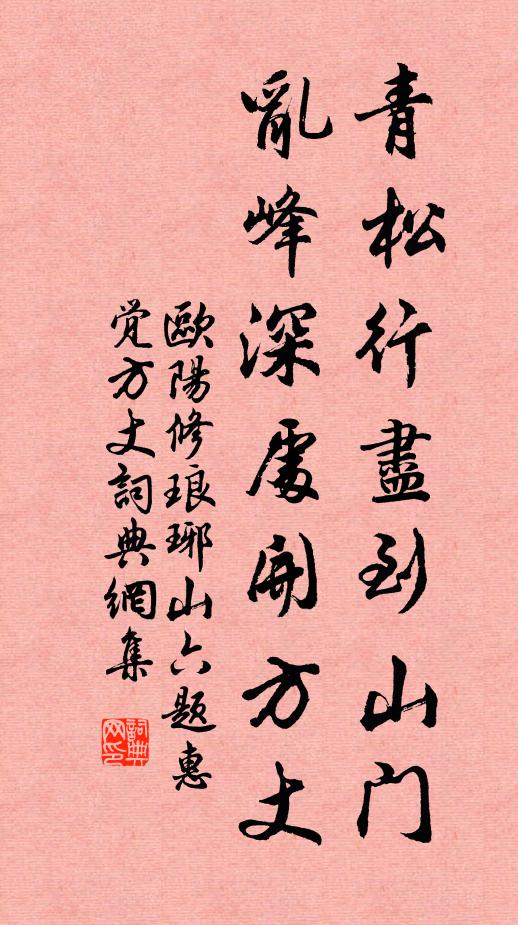 青松行盡到山門
亂峰深處開方丈
歐陽修琅琊山六題惠
觉方丈詞典網集
詞典网印